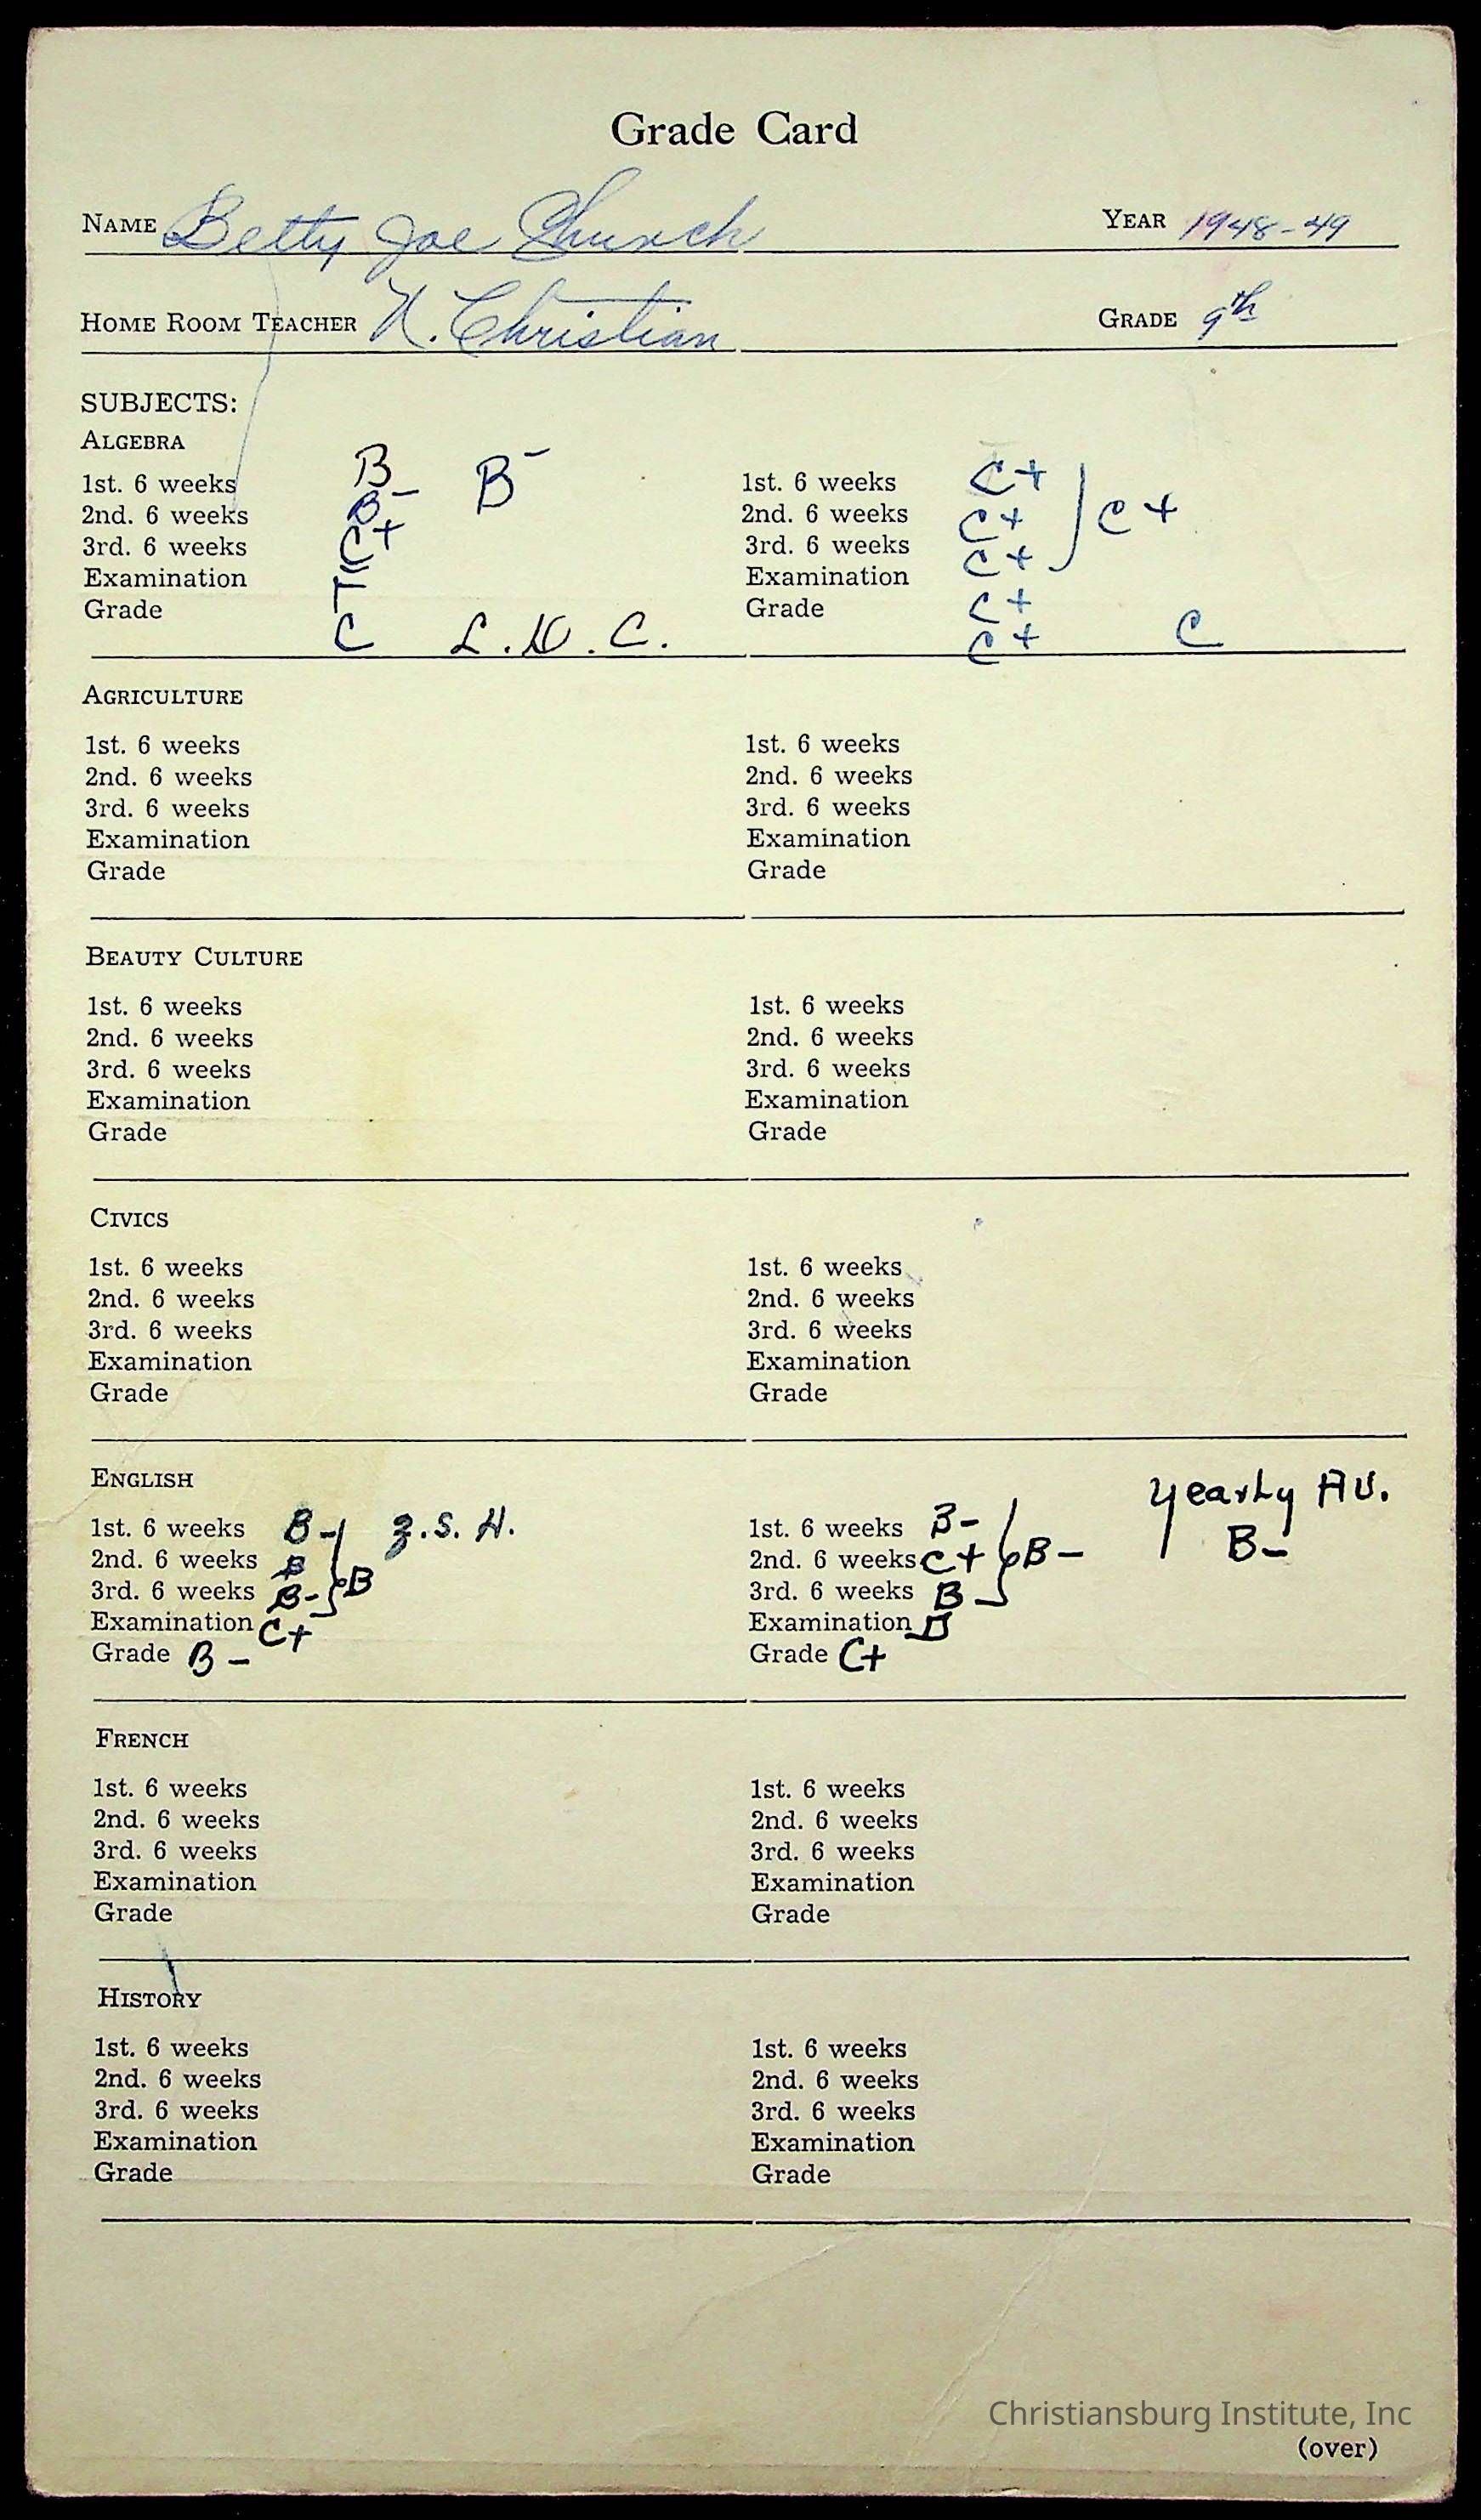 Grade Card
NAME Betty Joe Church YEAR 1948-49
HOME ROOM TEACHER N. Christian GRADE 9th
SUBJECTS:
ALGEBRA
1st. 6 weeks B B-
2nd. 6 weeks B-
3rd. 6 weeks C+
Examination
Grade C L.D.C.
1st. 6 weeks C+
2nd. 6 weeks C+ C+
3rd. 6 weeks C+
Examination C+
Grade C+ C
AGRICULTURE
1st. 6 weeks
2nd. 6 weeks
3rd. 6 weeks
Examination
Grade
1st. 6 weeks
2nd. 6 weeks
3rd. 6 weeks
Examination
Grade
BEAUTY CULTURE
1st. 6 weeks
2nd. 6 weeks
3rd. 6 weeks
Examination
Grade
1st. 6 weeks
2nd. 6 weeks
3rd. 6 weeks
Examination
Grade
CIVICS
1st. 6 weeks
2nd. 6 weeks
3rd. 6 weeks
Examination
Grade
1st. 6 weeks
2nd. 6 weeks
3rd. 6 weeks
Examination
Grade
ENGLISH
1st. 6 weeks B- Z.S.H.
2nd. 6 weeks B
3rd. 6 weeks B- B
Examination C+
Grade B-
Yearly Av.
1st. 6 weeks B-
2nd. 6 weeks C+ B- B-
3rd. 6 weeks B-
Examination D
Grade C+
FRENCH
1st. 6 weeks
2nd. 6 weeks
3rd. 6 weeks
Examination
Grade
1st. 6 weeks
2nd. 6 weeks
3rd. 6 weeks
Examination
Grade
HISTORY
1st. 6 weeks
2nd. 6 weeks
3rd. 6 weeks
Examination
Grade
1st. 6 weeks
2nd. 6 weeks
3rd. 6 weeks
Examination
Grade
Christiansburg Institute, Inc
(over)